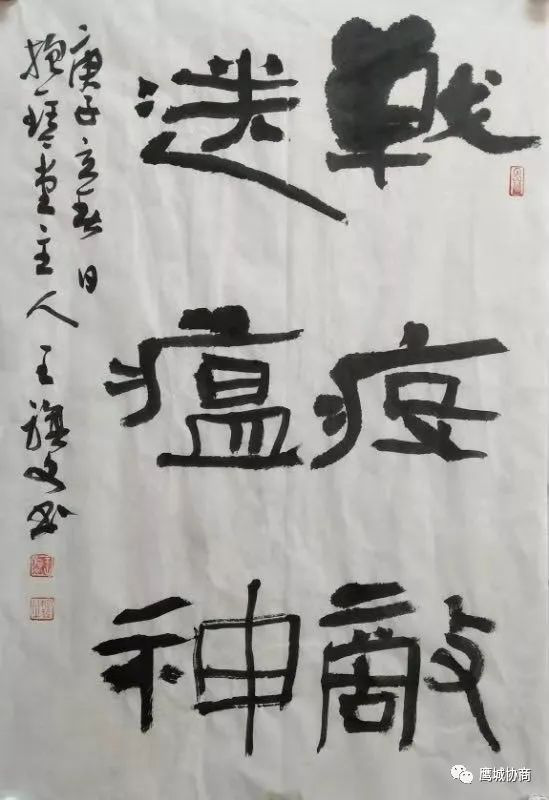 戰疫敵
送瘟神
庚子立春日
抱琴堂主人王旗文书
鹰城协商